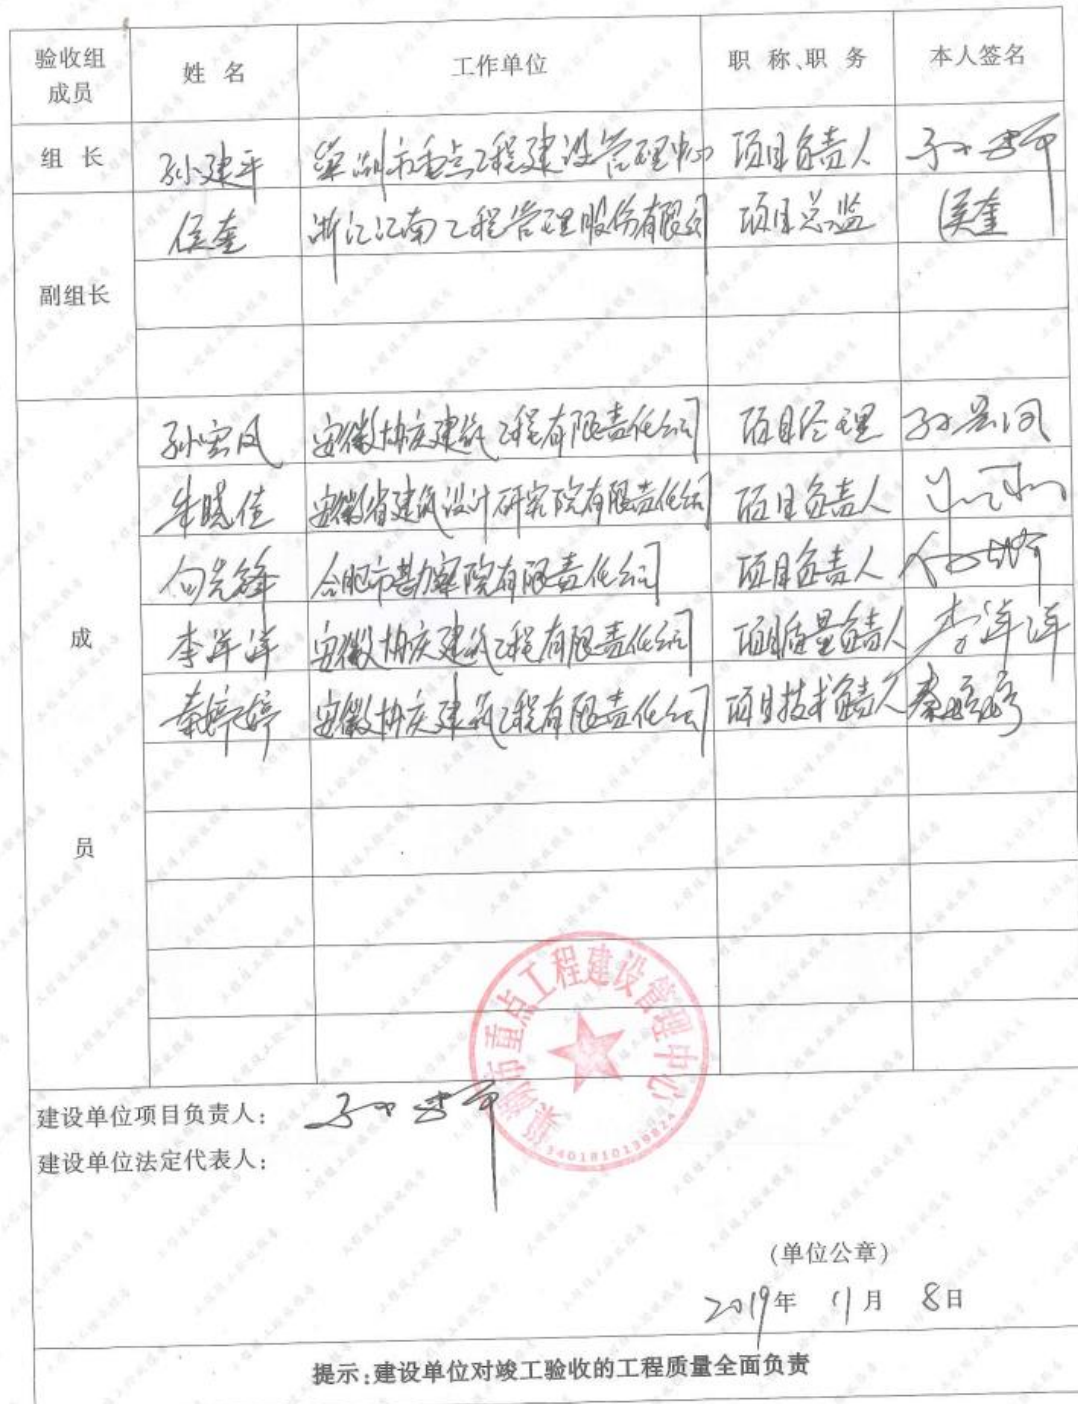 验收组成员 姓名 工作单位 职称、职务 本人签名
组长 孙建平 巢湖市重点工程建设管理中心 项目负责人 孙建平
侯奎 浙江江南工程管理股份有限公司 项目总监 侯奎
副组长
孙宏风 安徽协庆建筑工程有限责任公司 项目经理
朱晓佳 安徽省建筑设计研究院有限责任公司 项目负责人
先锋 合肥市勘察院有限责任公司 项目负责人
成 李洋洋 安徽协庆建筑工程有限责任公司 项目质量负责人 李洋洋
秦婷婷 安徽协庆建筑工程有限责任公司 项目技术负责人 秦婷婷
员
巢湖市重点工程建设管理中心
建设单位项目负责人: 孙建平
建设单位法定代表人:
(单位公章)
2019年 11月 8日
提示:建设单位对竣工验收的工程质量全面负责